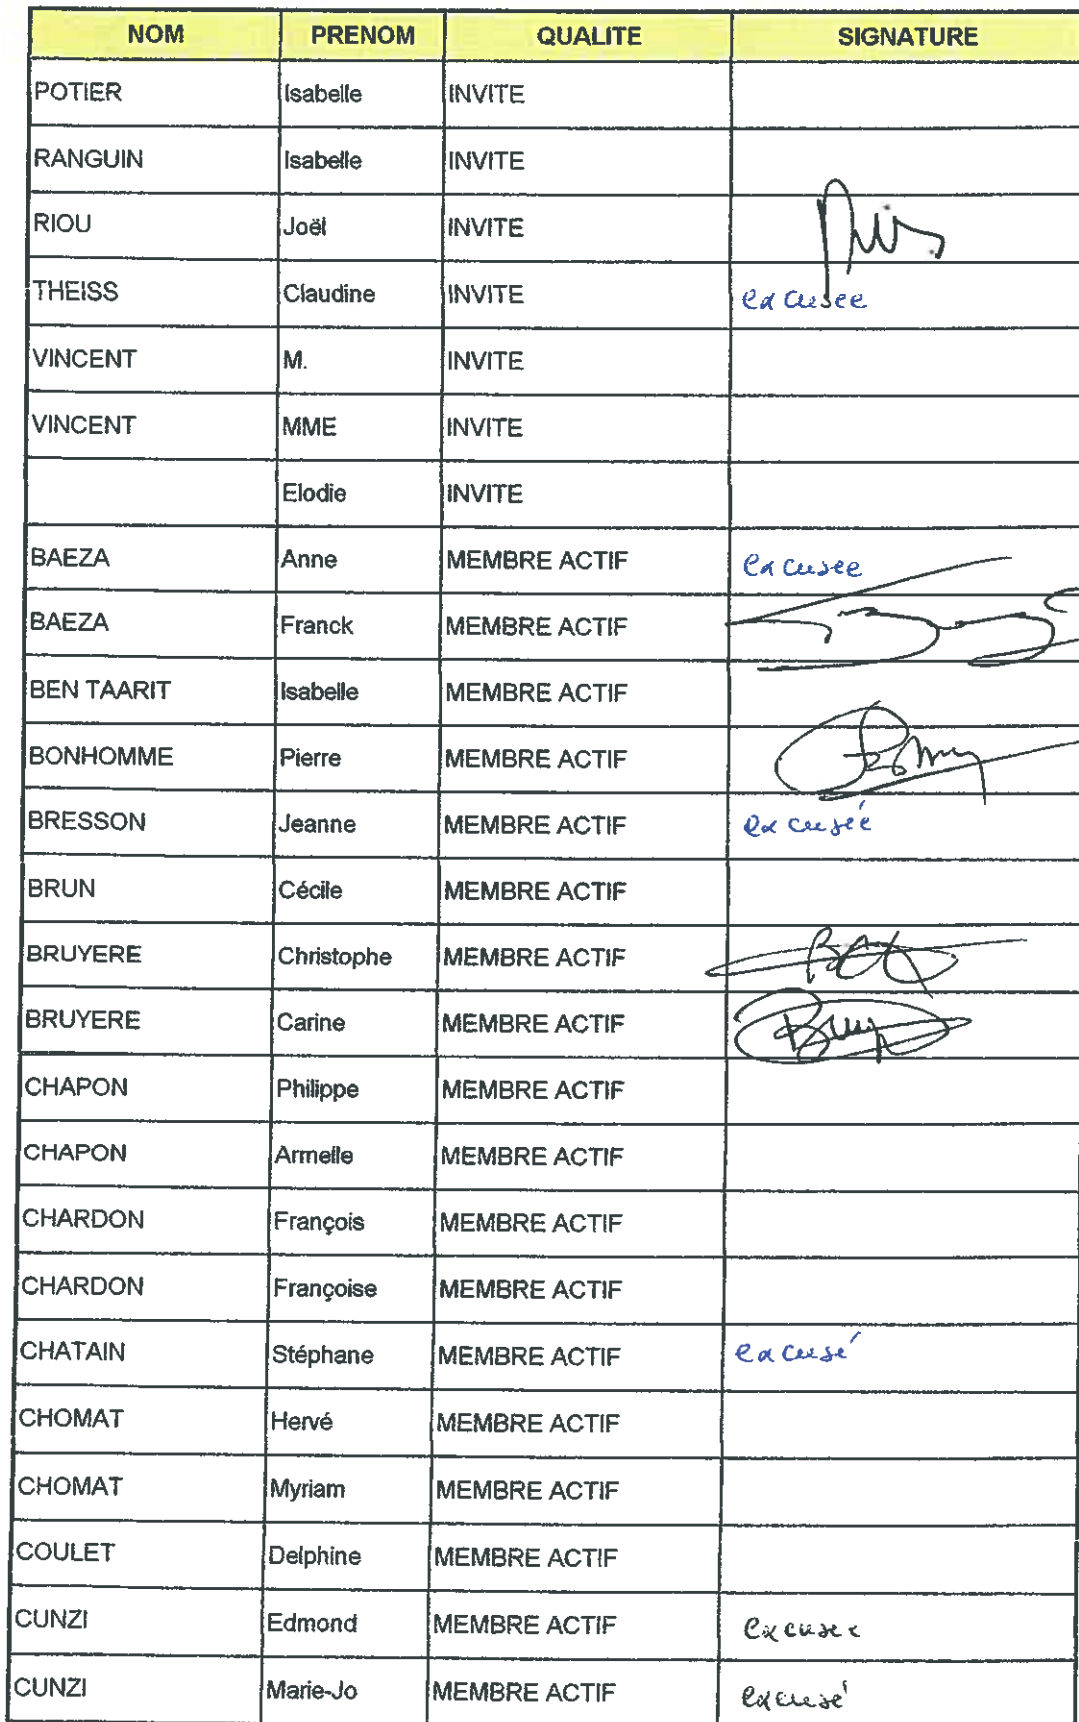 NOM PRENOM QUALITE SIGNATURE
POTIER Isabelle INVITE
RANGUIN Isabelle INVITE
RIOU Joël INVITE
THEISS Claudine INVITE excusee
VINCENT M. INVITE
VINCENT MME INVITE
Elodie INVITE
BAEZA Anne MEMBRE ACTIF excusee
BAEZA Franck MEMBRE ACTIF
BEN TAARIT Isabelle MEMBRE ACTIF
BONHOMME Pierre MEMBRE ACTIF
BRESSON Jeanne MEMBRE ACTIF excusée
BRUN Cécile MEMBRE ACTIF
BRUYERE Christophe MEMBRE ACTIF
BRUYERE Carine MEMBRE ACTIF
CHAPON Philippe MEMBRE ACTIF
CHAPON Armelle MEMBRE ACTIF
CHARDON François MEMBRE ACTIF
CHARDON Françoise MEMBRE ACTIF
CHATAIN Stéphane MEMBRE ACTIF excusé
CHOMAT Hervé MEMBRE ACTIF
CHOMAT Myriam MEMBRE ACTIF
COULET Delphine MEMBRE ACTIF
CUNZI Edmond MEMBRE ACTIF excusee
CUNZI Marie-Jo MEMBRE ACTIF excusé